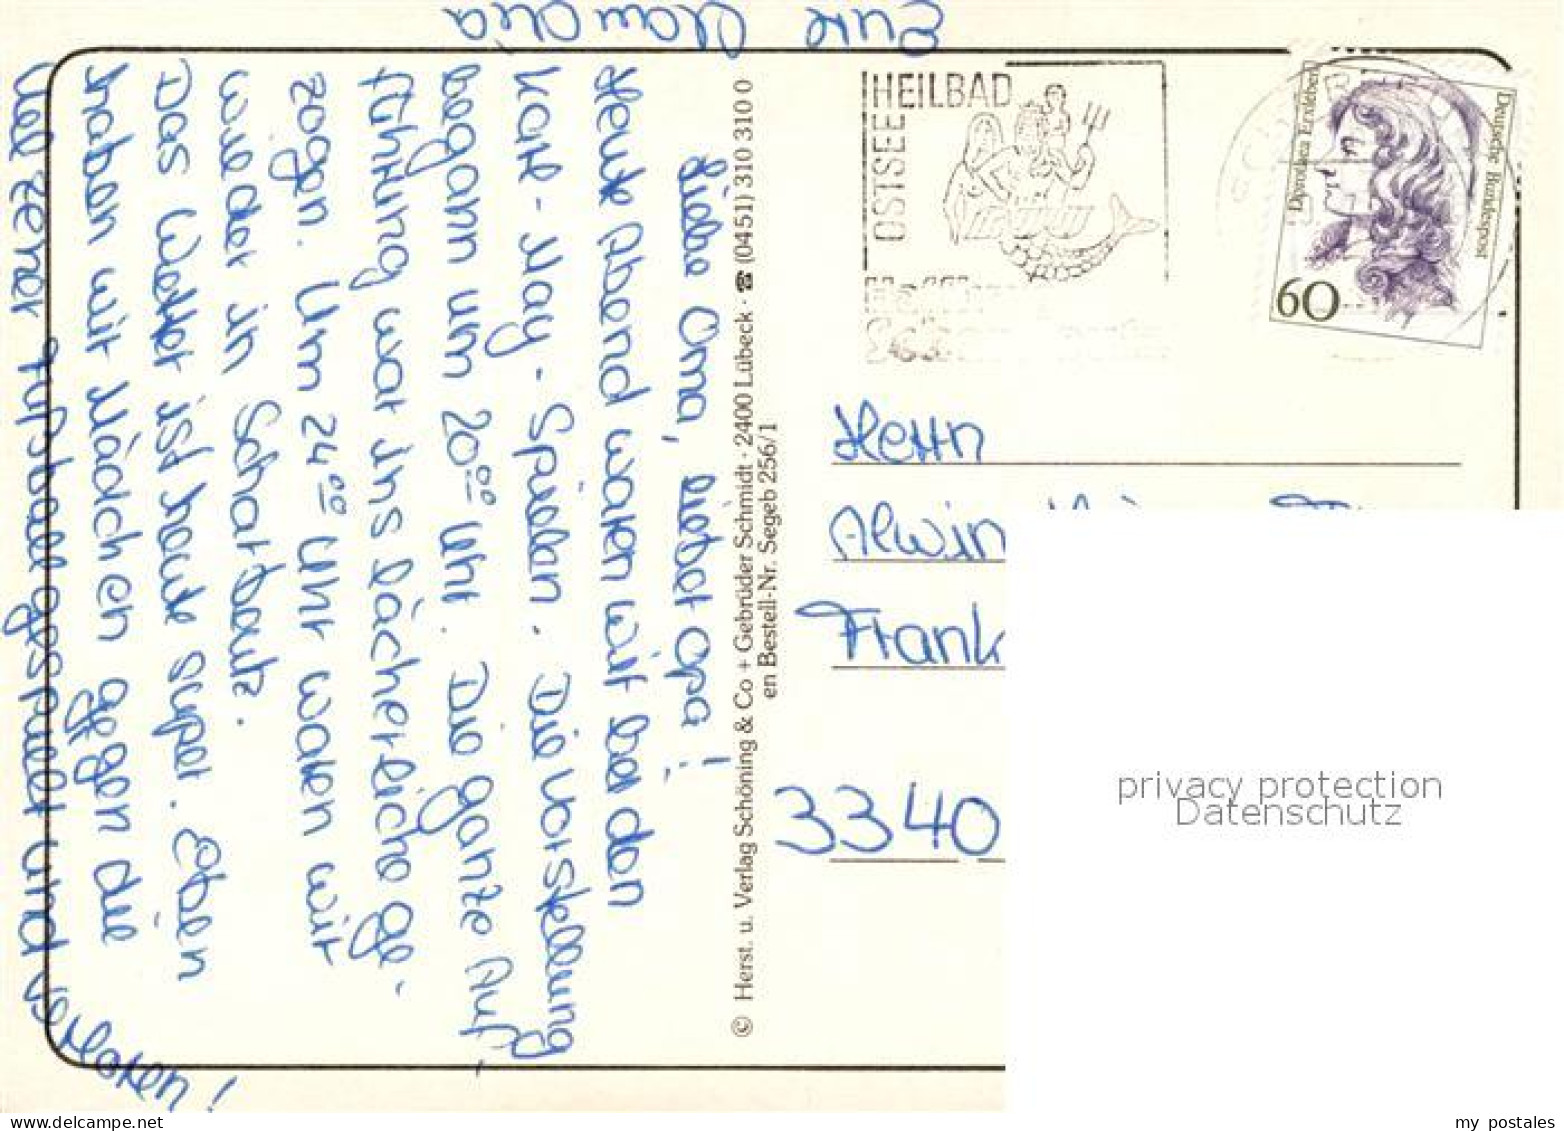 Liebe Oma, lieber Opa!
Heute Abend waren wir bei den
Karl-May-Spielen. Die Vorstellung
begann um 20⁰⁰ Uhr. Die ganze Auf-
führung war ins lächerliche ge-
zogen. Um 24⁰⁰ Uhr waren wir
wieder in Scharbeutz.
Das Wetter ist heute super. Eben
haben wir Mädchen gegen die
Uelzener Fußball gespielt und verloren!
Eure Claudia
© Herst. u. Verlag Schöning & Co + Gebrüder Schmidt · 2400 Lübeck · ☎ (0451) 310 310 0
en Bestell-Nr. Segeb 256/1
OSTSEE
HEILBAD
Deutsche Bundespost
Dorothea Erxleben
60
Herrn
Alwin
Frank
3340
privacy protection
Datenschutz
my postales